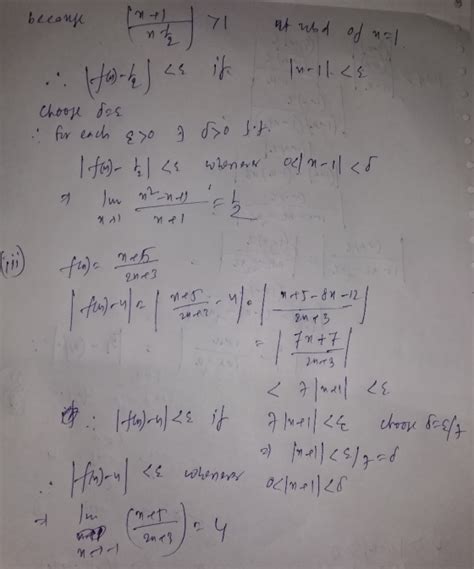 ∴ |f(x)-1/2| < ε if |x-1| < ε
choose δ=ε
∴ for each ε>0 ∃ δ>0 s.t.
|f(x)-1/2| < ε whenever 0<|x-1|<δ
⇒ lim x→1 (x²-x+1)/(x+1) = 1/2
(iii) f(x) = (x+5)/(2x+3)
|f(x)-4| = |(x+5)/(2x+3) - 4| = |(x+5-8x-12)/(2x+3)|
= |(7x+7)/(2x+3)|
< 7|x+1| < ε
∴ |f(x)-4| < ε if 7|x+1| < ε choose δ=ε/7
⇒ |x+1| < ε/7 = δ
∴ |f(x)-4| < ε whenever 0<|x+1|<δ
⇒ lim x→-1 ((x+5)/(2x+3)) = 4